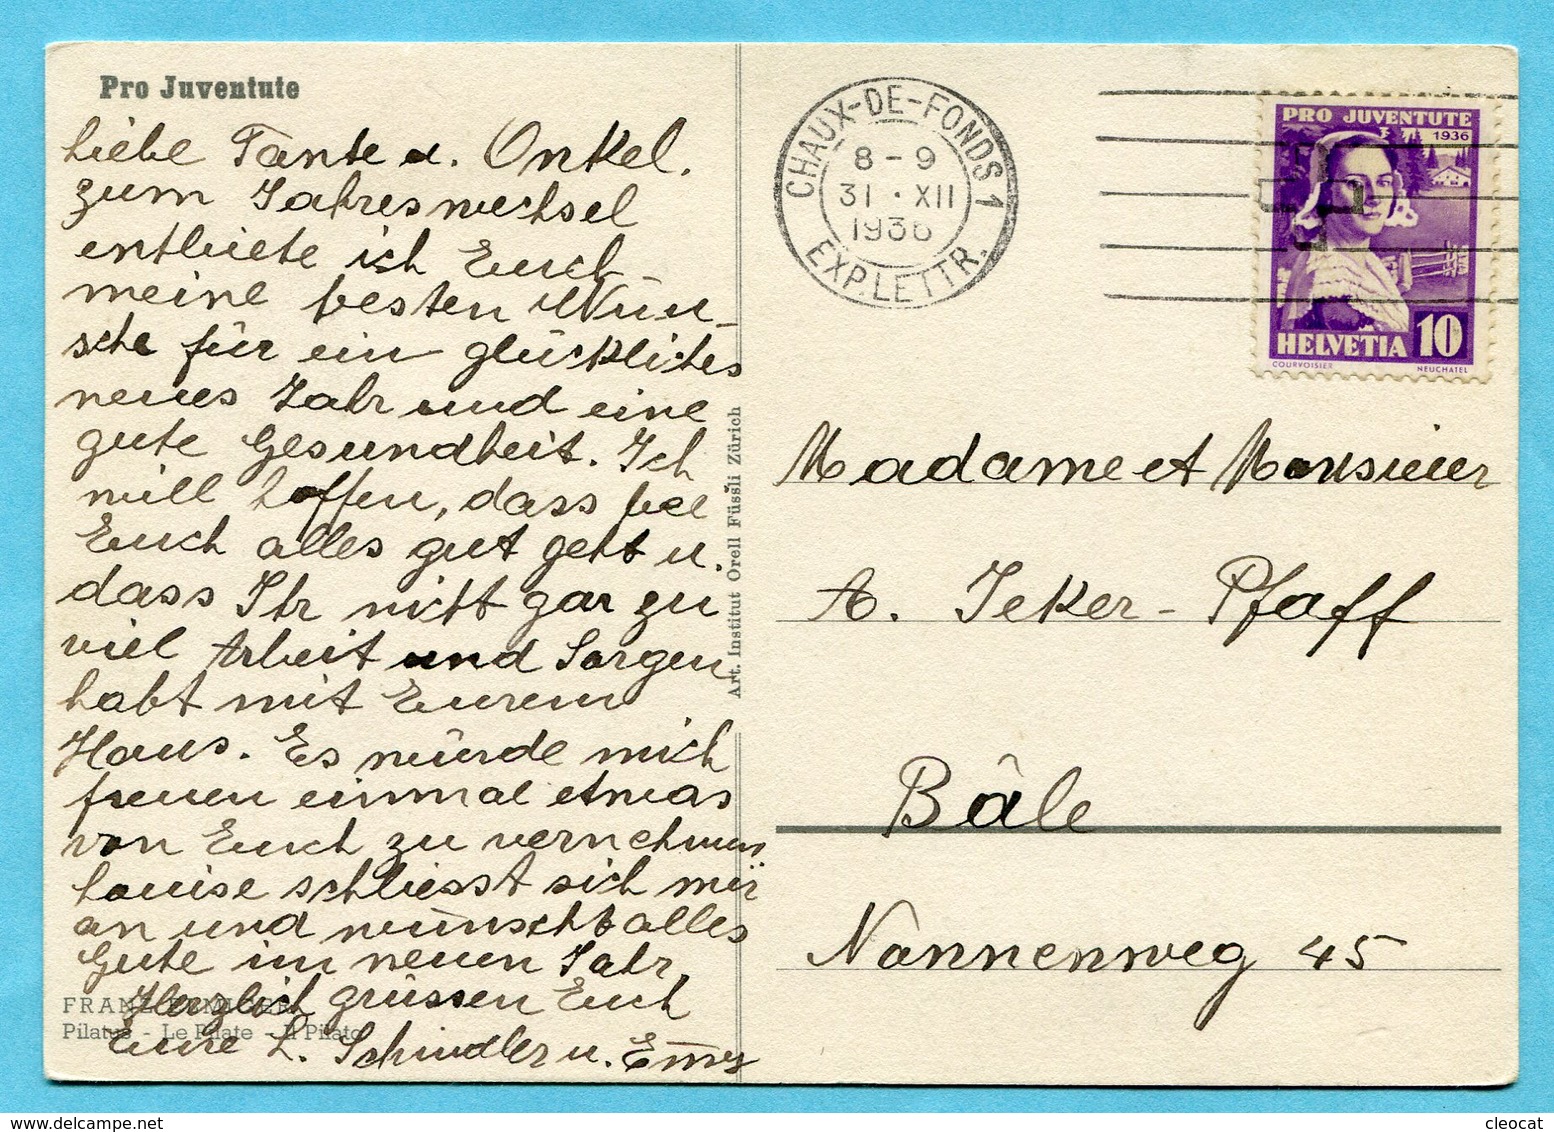 Pro Juventute
Liebe Tante u. Onkel.
zum Jahreswechsel
entbiete ich Euch
meine besten Wün-
sche für ein glückliches
neues Jahr und eine
gute Gesundheit. Ich
will hoffen, dass bei
Euch alles gut geht u.
dass Ihr nicht gar zu
viel Arbeit und Sorgen
habt mit Eurem
Haus. Es würde mich
freuen einmal etwas
von Euch zu vernehmen
Louise schliesst sich mir
an und wünscht alles
Gute im neuen Jahr,
Herzlich grüssen Euch
Eure L. Schindler u. Emmy
FRANZ
Pilatus - Le Pilate - Il Pilato
Art. Institut Orell Füssli Zürich
CHAUX-DE-FONDS 1
8-9
31·XII
1936
EXP. LETTR.
PRO JUVENTUTE
1936
HELVETIA 10
COURVOISIER NEUCHATEL
Madame et Monsieur
A. Jeker-Pfaff
Bâle
Nonnenweg 45
cleocat